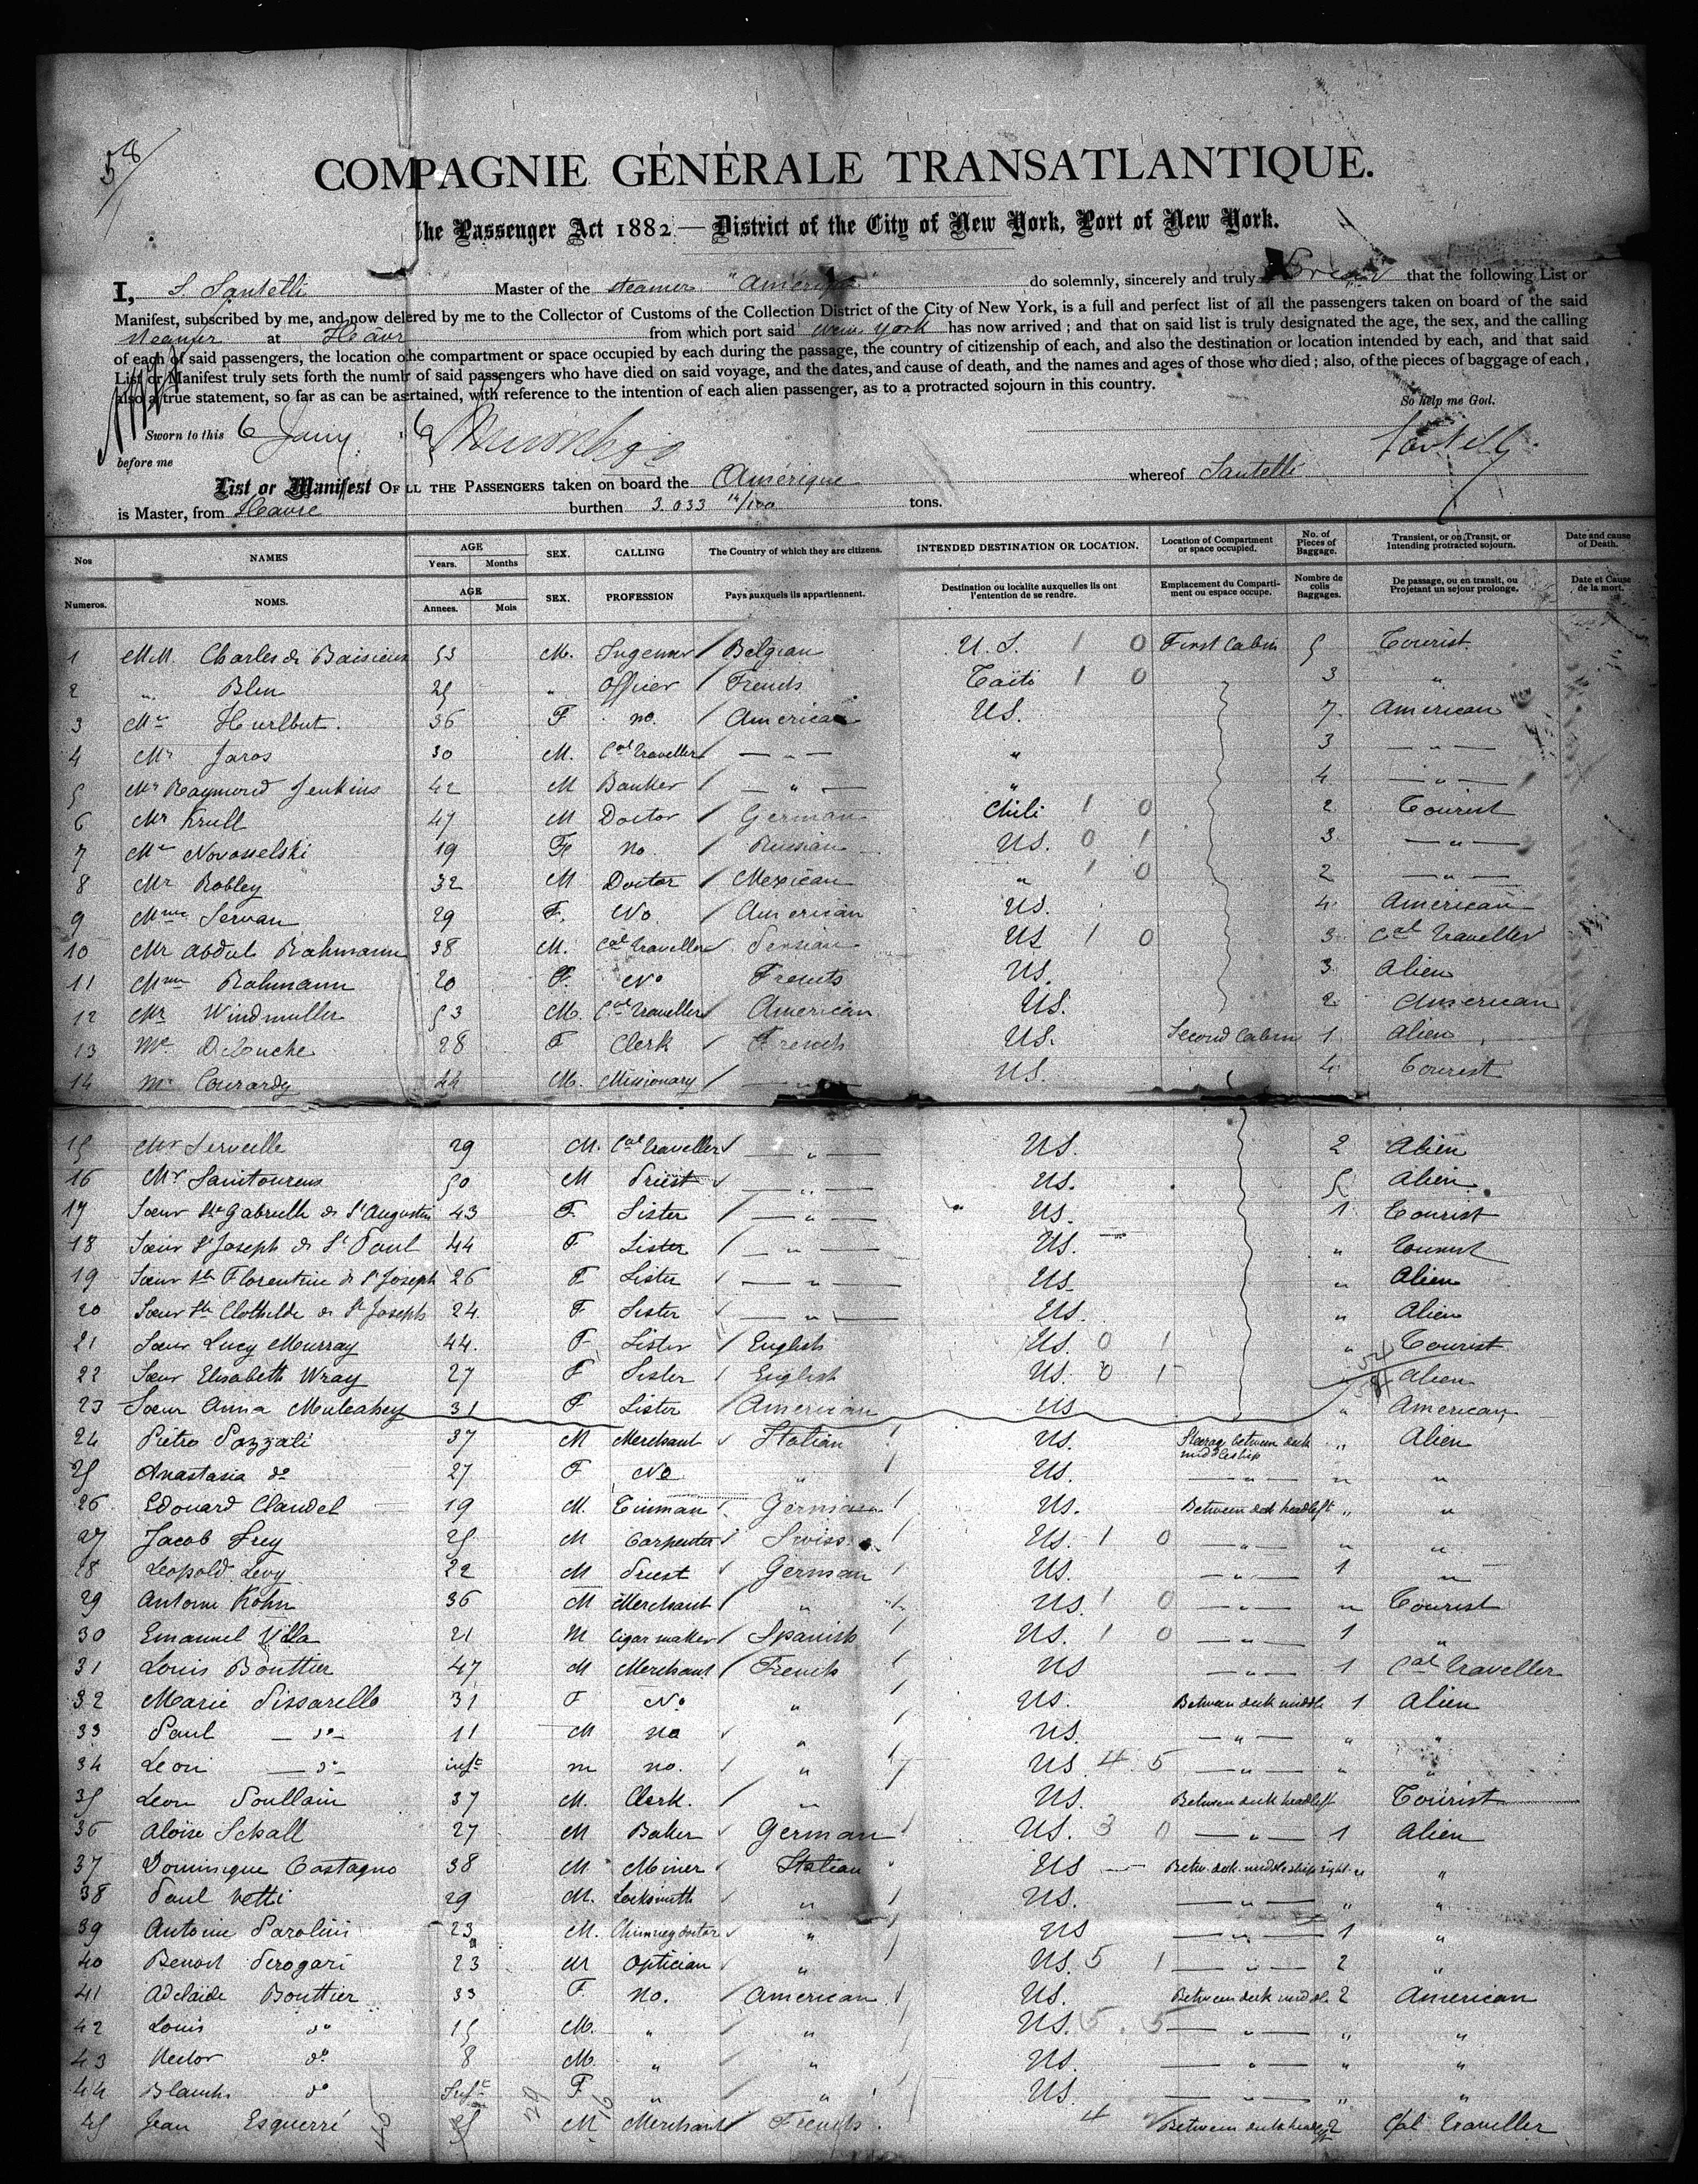 58
COMPAGNIE GÉNÉRALE TRANSATLANTIQUE.
he Passenger Act 1882 — District of the City of New York, Port of New York.
I, S. Santelli Master of the steamer "Amérique" do solemnly, sincerely and truly that the following List or
Manifest, subscribed by me, and now delered by me to the Collector of Customs of the Collection District of the City of New York, is a full and perfect list of all the passengers taken on board of the said
steamer at Hâvre from which port said New York has now arrived ; and that on said list is truly designated the age, the sex, and the calling
of each of said passengers, the location o the compartment or space occupied by each during the passage, the country of citizenship of each, and also the destination or location intended by each, and that said
List or Manifest truly sets forth the numbr of said passengers who have died on said voyage, and the dates, and cause of death, and the names and ages of those who died ; also, of the pieces of baggage of each ,
also a true statement, so far as can be asertained, with reference to the intention of each alien passenger, as to a protracted sojourn in this country.
So help me God.
Sworn to this 6 Jany 6
before me
Santelli
List or Manifest OF LL THE PASSENGERS taken on board the Amérique whereof Santelli
is Master, from Havre burthen 3.033 14/100 tons.
Nos NAMES AGE Years. Months SEX. CALLING The Country of which they are citizens. INTENDED DESTINATION OR LOCATION. Location of Compartment or space occupied. No. of Pieces of Baggage. Transient, or on Transit, or Intending protracted sojourn. Date and cause of Death.
Numeros. NOMS. AGE Annees. Mois SEX. PROFESSION Pays auxquels ils appartiennent. Destination ou localite auxquelles ils ont l'entention de se rendre. Emplacement du Comparti-ment ou espace occupe. Nombre de colis Baggages. De passage, ou en transit, ou Projetant un sejour prolonge. Date et Cause de la mort.
1 MM. Charles de Baisieux 53 M. Ingenieur / Belgian U.S. 1 0 First Cabin 5 Tourist
2 " Blin 25 " Officer / French Taïti 1 0 3 "
3 Me Hurlbut. 36 F no. / American US. 7 American
4 Mr Jaros 30 M. Cal Traveller / — " — " 3 — " —
5 Mr Raymond Jenkins 42 M Banker / — " — " 4 — " —
6 Mr Krull 47 M Doctor / German Chili 1 0 2 Tourist
7 Me Novosselski 19 F no. / Russian US. 0 1 3 — " —
8 Mr Robley 32 M Doctor / Mexican " 1 0 2 — " —
9 Mme Servan 29 F. No / American US. 4 American
10 Mr Abdul Rahmann 38 M. Cal Traveller Persian US 1 0 3 Cal Traveller
11 Mme Rahmann 20 F. No French US. 3 Alien
12 Mr Windmuller 53 M. Cal Traveller / American US. 2 American
13 Me Delouche 28 F Clerk / French US. Second Cabin 1 Alien
14 Mr Courardy 44 M. Missionary / — " — US. 4 Tourist
15 Mr Serveille 29 M. Cal Traveller — " — US. 2 Alien
16 Mr Saintourens 50 M Priest — " — US. 5 Alien
17 Sœur Ste Gabrielle de St Augustin 43 F Sister / — " — US. 1 Tourist
18 Sœur St Joseph de St Paul 44 F Sister / — " — US. " Tourist
19 Sœur Ste Florentine de St Joseph 26 F Sister / — " — US. " Alien
20 Sœur Ste Clothilde de St Joseph 24. F Sister — " — US. " Alien
21 Sœur Lucy Murray 44. F Sister / English US. 0 1 " Tourist
22 Sœur Elisabeth Wray 27 F Sister / English US. 0 1 Alien
23 Sœur Anna Mulcahey 31 F Sister / American US " American
24 Pietro Pozzali 37 M Merchant Italian US. Steerage between deck middleship " Alien
25 Anastasia do 27 F No " US. — " — " "
26 Edouard Claudel 19 M. Tinman German US. Between deck head left " "
27 Jacob Frey 25 M Carpenter Swiss US. 1 0 — " — " "
28 Leopold Levy 22 M Priest German US. — " — 1 "
29 Antoine Kohn 36 M Merchant " US. 1 0 — " — " Tourist
30 Emanuel Villa 21 M Cigar maker / Spanish US. 1 0 — " — 1 "
31 Louis Bouttier 47 M Merchant / French US — " — 1 Cal Traveller
32 Marie Pissarello 31 F No " US. Between deck middle 1 Alien
33 Paul — do — 11 M no " US. — " — " "
34 Leon — do — inft m no. " US 4 5 — " — " "
35 Leon Poullain 37 M. Clerk. " US. Between deck head left Tourist
36 Aloïse Schall 27 M Baker German US. 3 0 — " — 1 Alien
37 Dominique Castagno 38 M Miner Italian US Betw. deck middleship right " "
38 Paul Vetti 29 M. Locksmith " US. — " — " "
39 Antoine Parolini 23 M. Chimney doctor " US — " — 1 "
40 Benoit Perogari 23 M Optician " US. 5 1 — " — 2 "
41 Adelaïde Bouttier 33 F no. / American US. Between deck middle 2 American
42 Louis do 15 M. " " US. 5. 5 — " — " "
43 Hector do 8 M. " " US. — " — " "
44 Blanche do Inft F " " US. — " — " "
45 Jean Esquerré 25 M Merchant French 4 Between deck head left 2 Cal Traveller